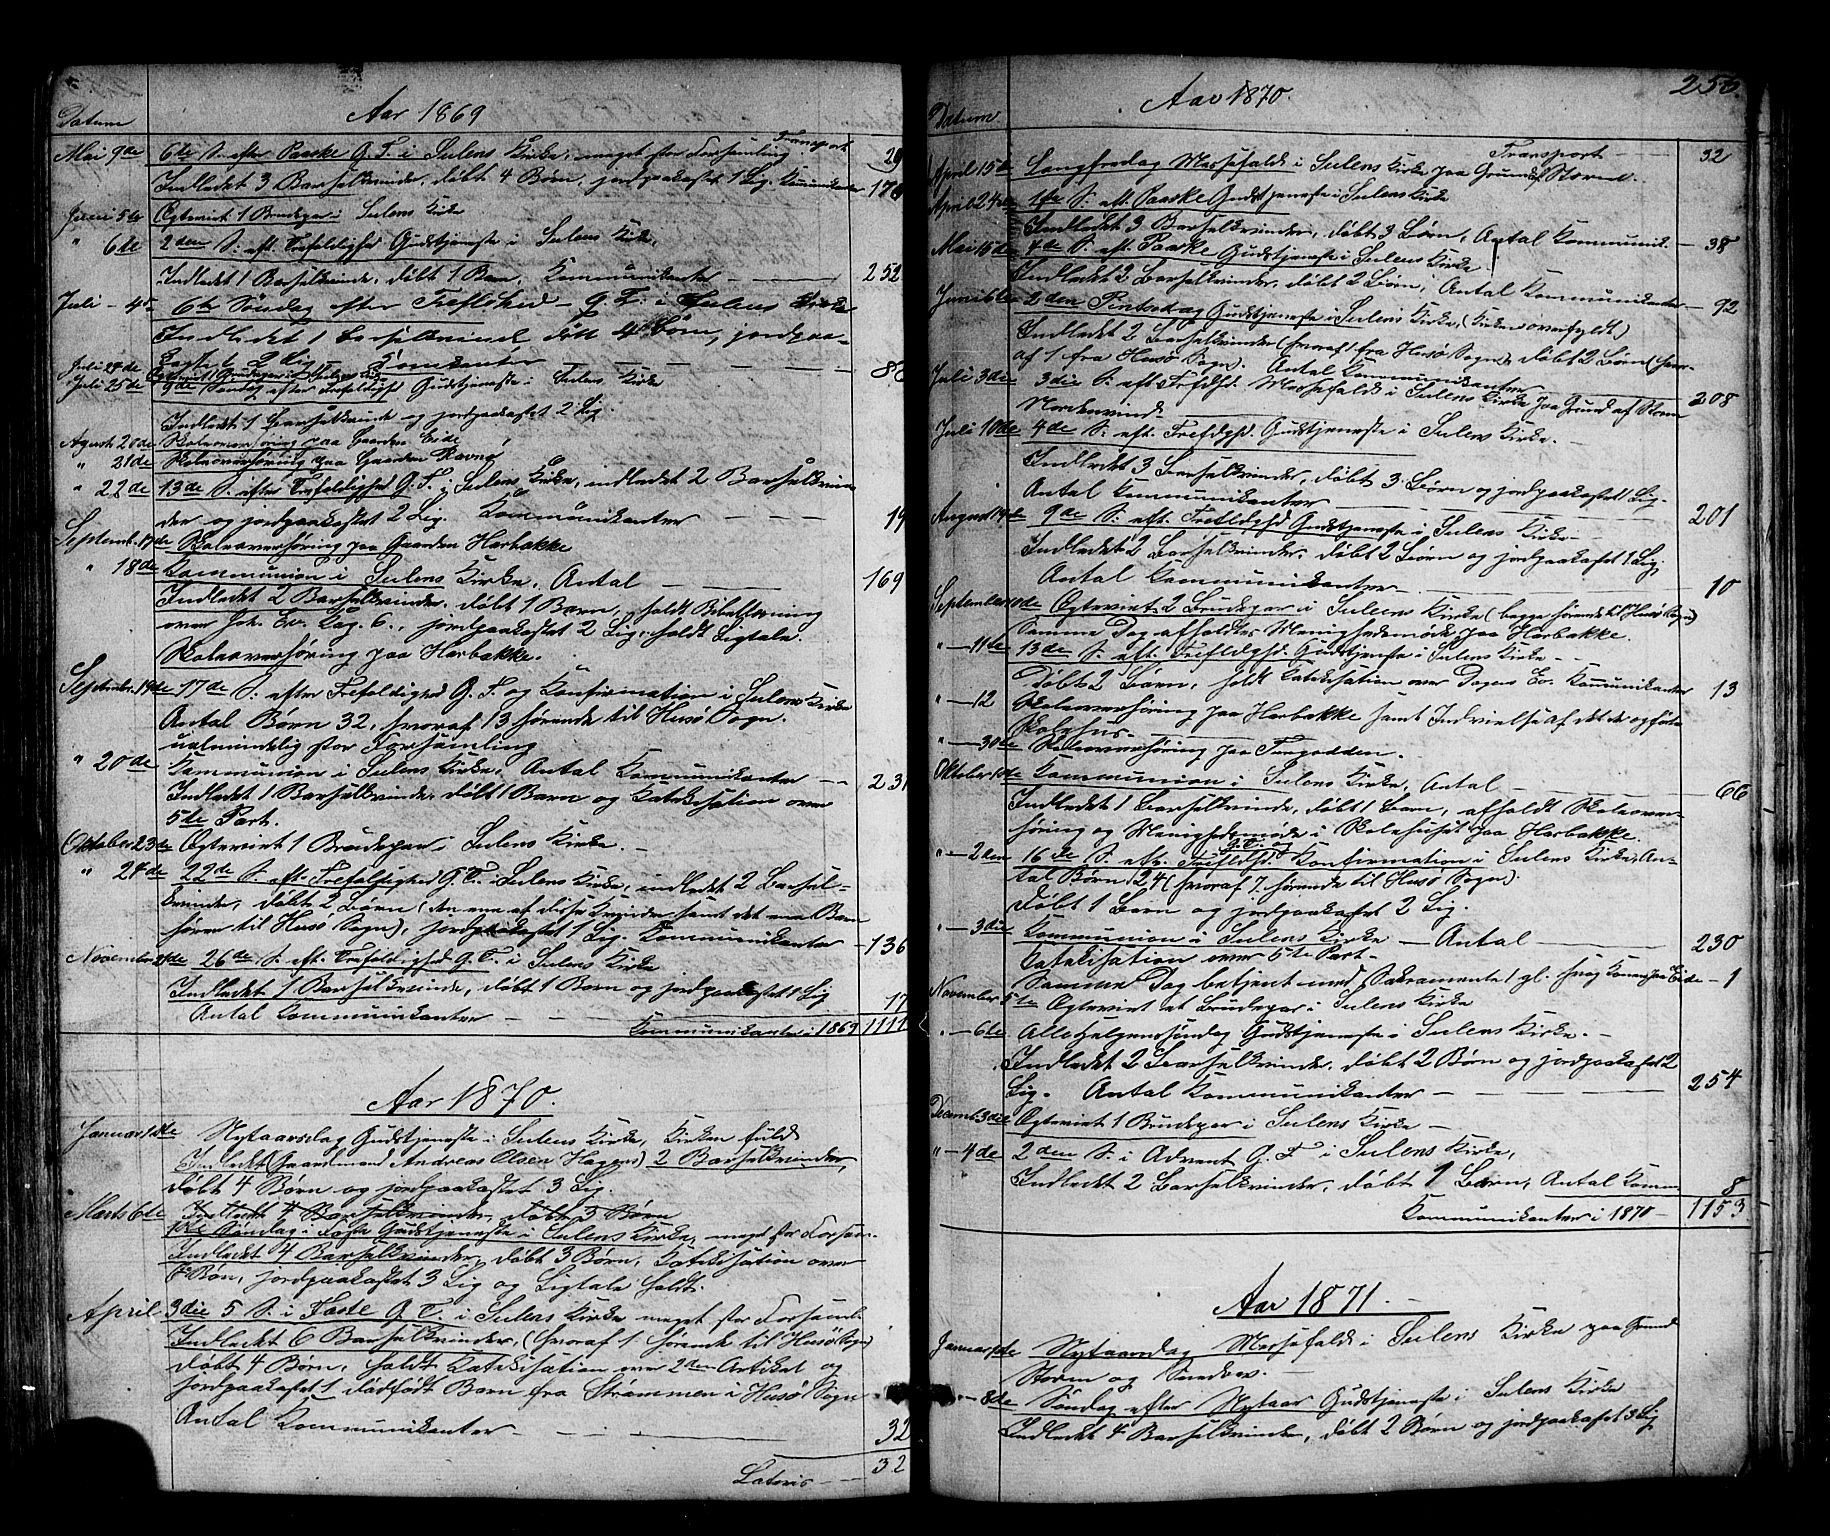 Datum
Aar 1869
Transport
Mai 9de 6te S. efter Paaske G. T. i Sulens Kirke, meget stor Forsamling 29
Indledet 3 Barselkvinder, døbt 4 Børn, jordpaakastet 1 Lig. Kommunikanter
Juni 5te Ægteviet 1 Brudepar i Sulens Kirke
" 6te 2den S. eft. Trefoldighed Gudstjeneste i Sulens Kirke,
Indledet 1 Barselkvinde, døbt 1 Barn, Kommunikanter — 252
Juli – 4de 6te Søndag efter Treflshed – G. T. i Sulens Kirke
Indledet 1 Barselkvinde døbt 4 Børn, jordpaa-
kastet 2 Lig — Komikanter
Juli 24de Ægteviet 1 Brudepar i Sulens Kirke
Juli 25de 9de Søndag efter Trefoldighd Gudstjeneste i Sulens Kirke
Indledet 1 Barselkvinde og jordpaakastet 2 Lig.
Agust 20de Skoleoverhøring paa Gaarden Eide
" 21de Skoleoverhøring paa Gaarden Ravnø
" 22de 13de S. efter Trefoldighed G. T. i Sulens Kirke, indledet 2 Barselkvin
der og jordpaakastet 2 Lig. Kommunikanter — 19
Septemb. 17de Skoleoverhøring paa Gaarden Harbakke
" 18de Kommunion i Sulens Kirke, Antal — 169
Indledet 2 Barselkvinder, døbt 1 Barn, holdt Bibellæsning
over Joh. Ev. Cap. 6., jordpaakastet 2 Lig, holdt Ligtale.
Skoleoverhøring paa Harbakke.
September 19de 17de S. efter Trefoldighed G. T. og Konfirmation i Sulens Kirke
Antal Børn 32, hvoraf 13 hørende til Husø Sogn.
ualmindelig stor Forsamling
" 20de Kommunion i Sulens Kirke, Antal Kommunikanter — 231
Indledet 1 Barselkvinde, døbt 1 Barn og Katekisation over
5te Part.
Oktober 23de Ægteviet 1 Brudepar i Sulens Kirke. –
" 24de 22de S. eft. Trefoldighed G. T. i Sulens Kirke, indledet 2 Barsel-
kvinder, døbt 2 Børn (den ene af disse Kvinder samt det ene Barn
hører til Husø Sogn), jordpaakastet 1 Lig. Kommunikanter – 136
November 21de 26de S. eft. Trefoldighed G. T. i Sulens Kirke
Indledet 1 Barselkvinde, døbt 1 Barn og jordpaakastet 1 Lig
Antal Kommunikanter — 17
Kommunikanter i 1869 1111
Aar 1870.
Januar 1ste Nytaarsdag Gudstjeneste i Sulens Kirke, Kirken fuld
Indledet (Gaardmand Andreas Olsen Hagens) 2 Barselkvinder,
døbt 4 Børn og jordpaakastet 3 Lig.
Marts 6te Indledet 4 Barselkvinder, døbt 3 Børn
1ste Søndag i Faste Gudstjeneste i Sulens Kirke, meget stor Forsam-
Indledet 4 Barselkvinder, døbt 3 Børn, Katekisation over
Bøn, jordpaakastet 3 Lig og Ligtale holdt.
April 3die 5 S. i Faste G. T. i Sulens Kirke meget stor Forsaml.
Indledet 6 Barselkvinder, (hvoraf 1 hørende til Husø Sogn)
døbt 4 Børn, holdt Katekisation over 2den Artikel og
jordpaakastet 1 dødfødt Barn fra Strømmen i Husø Sogn
Antal Kommunikanter — 32
Lateris — 32
256.
Datum.
Aar 1870.
Transport — 32
April 15de Langfredag Messefald i Sulens Kirke paa Grund af Storm.
April 24de 1ste S. eft. Paaske Gudstjeneste i Sulens Kirke
Indledet 3 Barselkvinder, døbt 3 Børn, Antal Kommunik. — 38
Mai 15de 4de S. eft. Paaske Gudstjeneste i Sulens Kirke.
Indledet 2 Barselkvinder, døbt 2 Børn, Antal Kommunikanter – 92
Juni 6te 2den Pintsedag Gudstjeneste i Sulens Kirke, (Kirken overfyldt)
Indledet 2 Barselkvinder (hvoraf 1 fra Husø Sogn, døbt 2 Børn (hvor-
af 1 fra Husø Sogn). Antal Kommunikanter — 208
Juli 3die 3die S. eft. Trefdhd. Messefald i Sulens Kirke paa Grund af Storm
Nordenvind
Juli 10de 4de S. eft. Trefdghd. Gudstjeneste i Sulens Kirke. –
Indledet 3 Barselkvinder, døbt 3 Børn og jordpaakastet 1 Lig.
Antal Kommunikanter — 201
August 14de 9de S. eft. Trefldghd Gudstjeneste i Sulens Kirke –
Indledet 2 Barselkvinder, døbt 2 Børn og jordpaakastet 1 Lig.
Antal Kommunikanter — 10
September 10de Ægteviet 2 Brudepar i Sulens Kirke (begge hørende til Husø Sogn)
Samme Dag afholdtes Menighedsmøde paa Harbakke.
" — 11te 13de S. eft. Trefldghd. Gudstjeneste i Sulens Kirke – –
Døbt 2 Børn, holdt Katekisation over Dagens Ev. Kommunikanter 13
" — 12 Skoleoverhøring paa Harbakke samt Indvielse af det der opførte
Skolehus –
" — 30de Skoleoverhøring paa Tungodden.
Oktober 1ste Kommunion i Sulens Kirke, Antal — 66
Indledet 1 Barselkvinde, døbt 1 Barn, afholdt Skoleover-
høring og Menighedsmøde i Skolehuset paa Harbakke.
" — 2den 16de S. eft. Trefdghd. G. T. og Konfirmation i Sulens Kirke, An-
tal Børn 24 (hvoraf 7 hørende til Husø Sogn)
døbt 1 Barn og jordpaakastet 2 Lig.
" — 3die Kommunion i Sulens Kirke — Antal — 230
Katekisation over 5te Part –
Samme Dag betjent med Sakramente 1 gl. svag Kone paa Eide – 1
November 5te Ægteviet et Brudepar i Sulens Kirke
" — 6te Allehelgenssøndag Gudstjeneste i Sulens Kirke. –
Indledet 2 Barselkvinder, døbt 2 Børn og jordpaakastet 2
Lig. Antal Kommunikanter — 254
Decemb. 3die Ægteviet 1 Brudepar i Sulens Kirke –
" — 4de 2den S. i Advent G. T. i Sulens Kirke,
Indledet 2 Barselkvinder, døbt 1 Barn, Antal Komm. 8
Kommunikanter i 1870 – 1153
Aar 1871. –
Januar 1ste Nytaarsdag Messefald i Sulens Kirke paa Grund
Storm og Snedrev.
" — 8de Søndag efter Nytaar Gudstjeneste i Sulens Kirke
Indledet 4 Barselkvinder, døbt 2 Børn og jordpaakastet 3 Lig